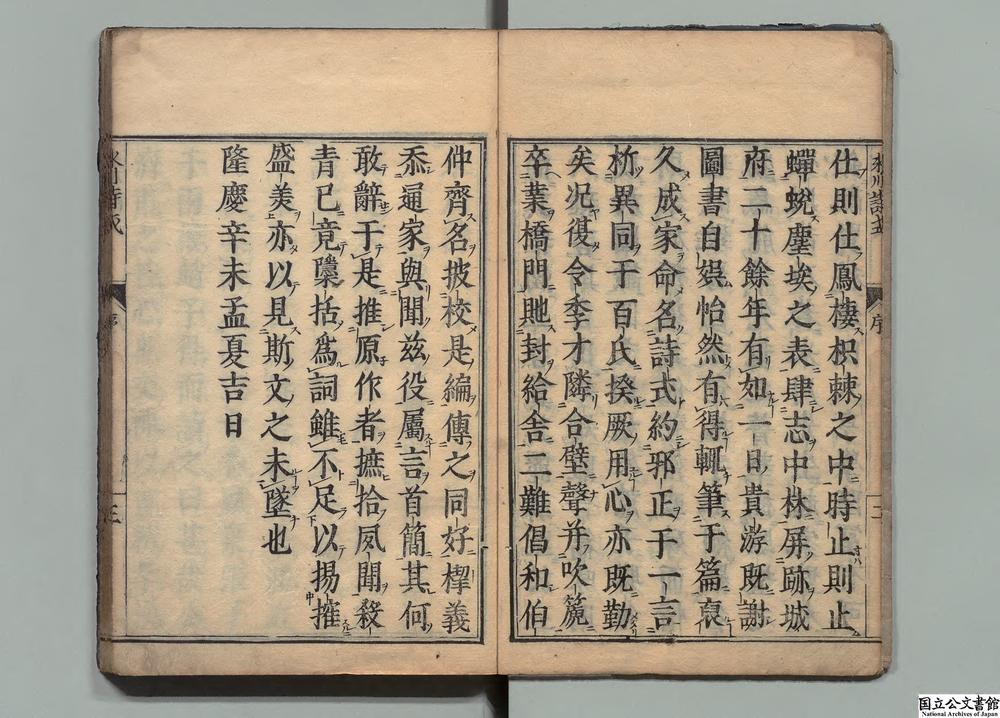 仕則仕鳳棲枳棘之中時止則止
蟬蛻塵埃之表肆志中林屏跡城
府二十餘年有如一日貴游既謝
圖書自娯怡然有得輒筆于篇裒
久成家命名詩式約邪正于一言
析異同于百氏揆厥用心亦既勤
矣况復令季才隣合璧聲并吹篪
卒業橋門貤封給舎二難倡和伯
仲齊名披校是編傳之同好樨義
忝通家與聞兹役屬言首簡其何
敢辭于是推原作者摭拾夙聞殺
青已竟檃括爲詞雖不足以揚搉
盛美亦以見斯文之未墜也
隆慶辛未孟夏吉日
序
二
序
三
国立公文書館
National Archives of Japan